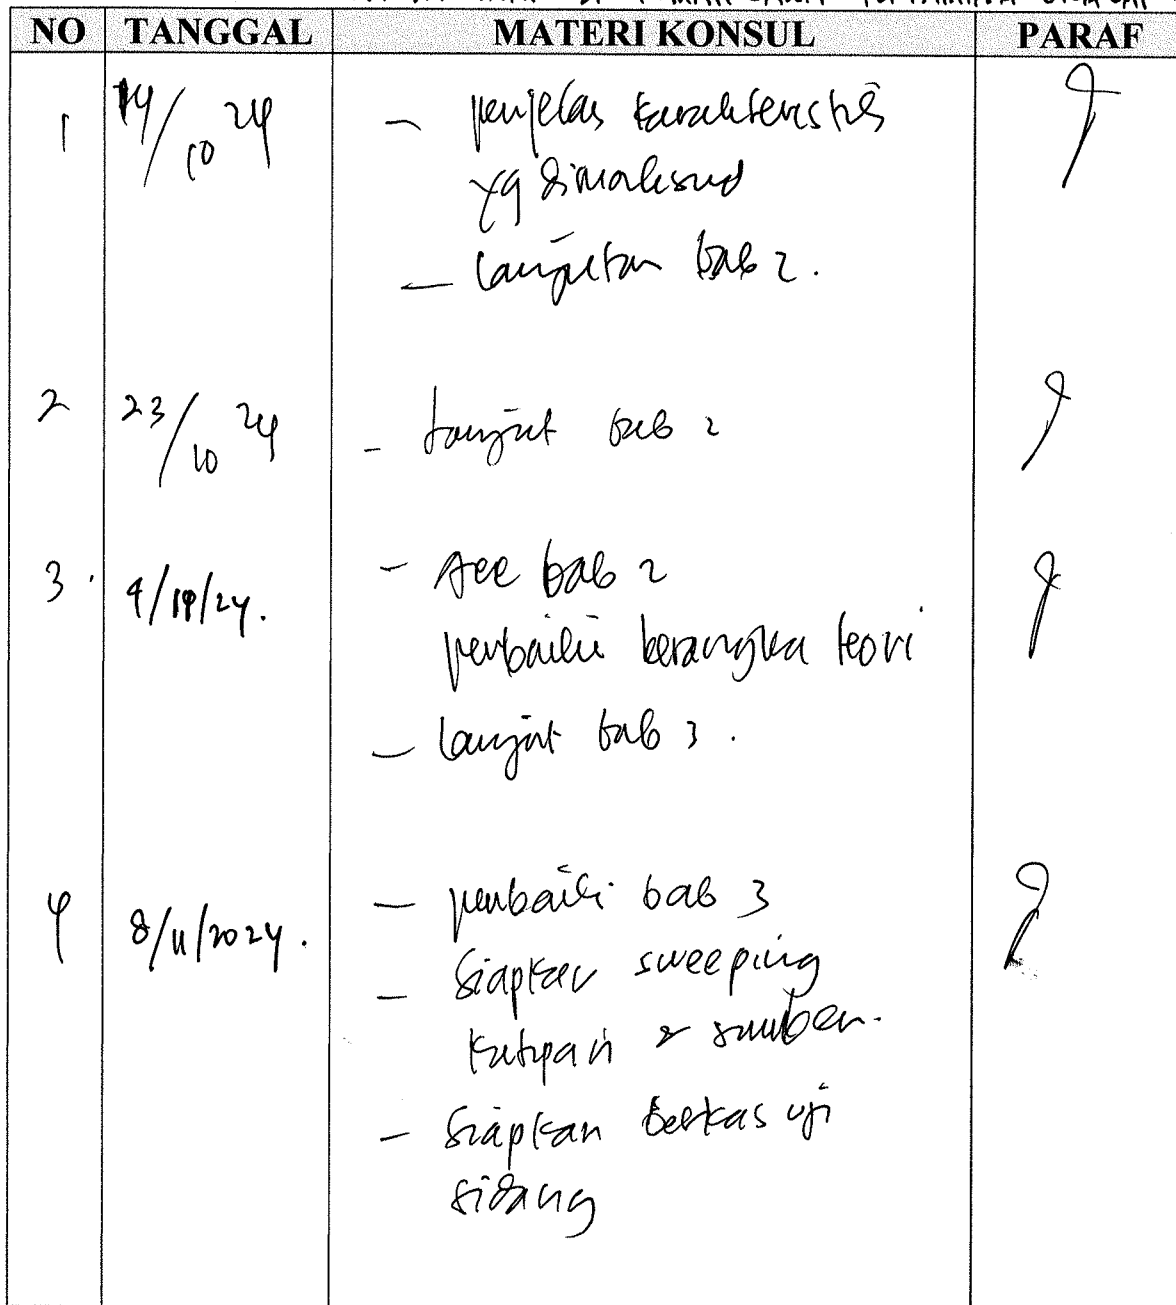 NO TANGGAL MATERI KONSUL PARAF
1 14/10 24 - penjelas karakteristik
yg dimaksud
- lanjutan bab 2.
2 23/10 24 - lanjut bab 2
3. - Acc bab 2
perbaiki kerangka teori
- lanjut bab 3.
4 8/11/2024. - perbaiki bab 3
- Siapkan sweeping
kutipan & sumber.
- Siapkan berkas uji
sidang